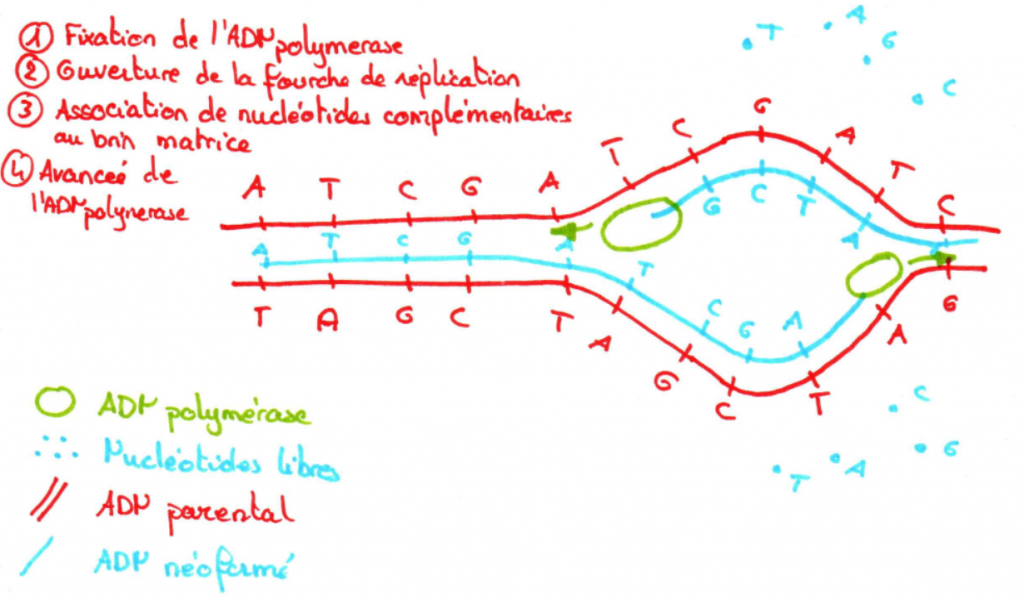 ① Fixation de l'ADN polymerase
② Ouverture de la fourche de réplication
③ Association de nucléotides complémentaires
au brin matrice
④ Avancée de
l'ADN polymerase
T A G C
A T C G A T C G A T C
G C T A
A T C G A T C G A
T A G C T A G C T A G
C G A T
ADN polymérase
Nucléotides libres
ADN parental
ADN néoformé